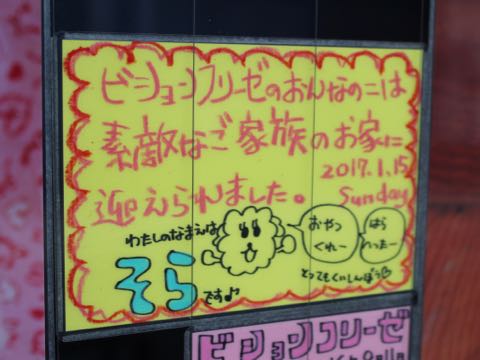 ビションフリーゼのおんなのこは
素敵なご家族のお家に
2017.1.15
迎えられました。
Sunday
わたしのなまえは
おやつ
くれー
はら
へったー
そら
です♪
とってもくいしんぼう
ビションフリーゼ